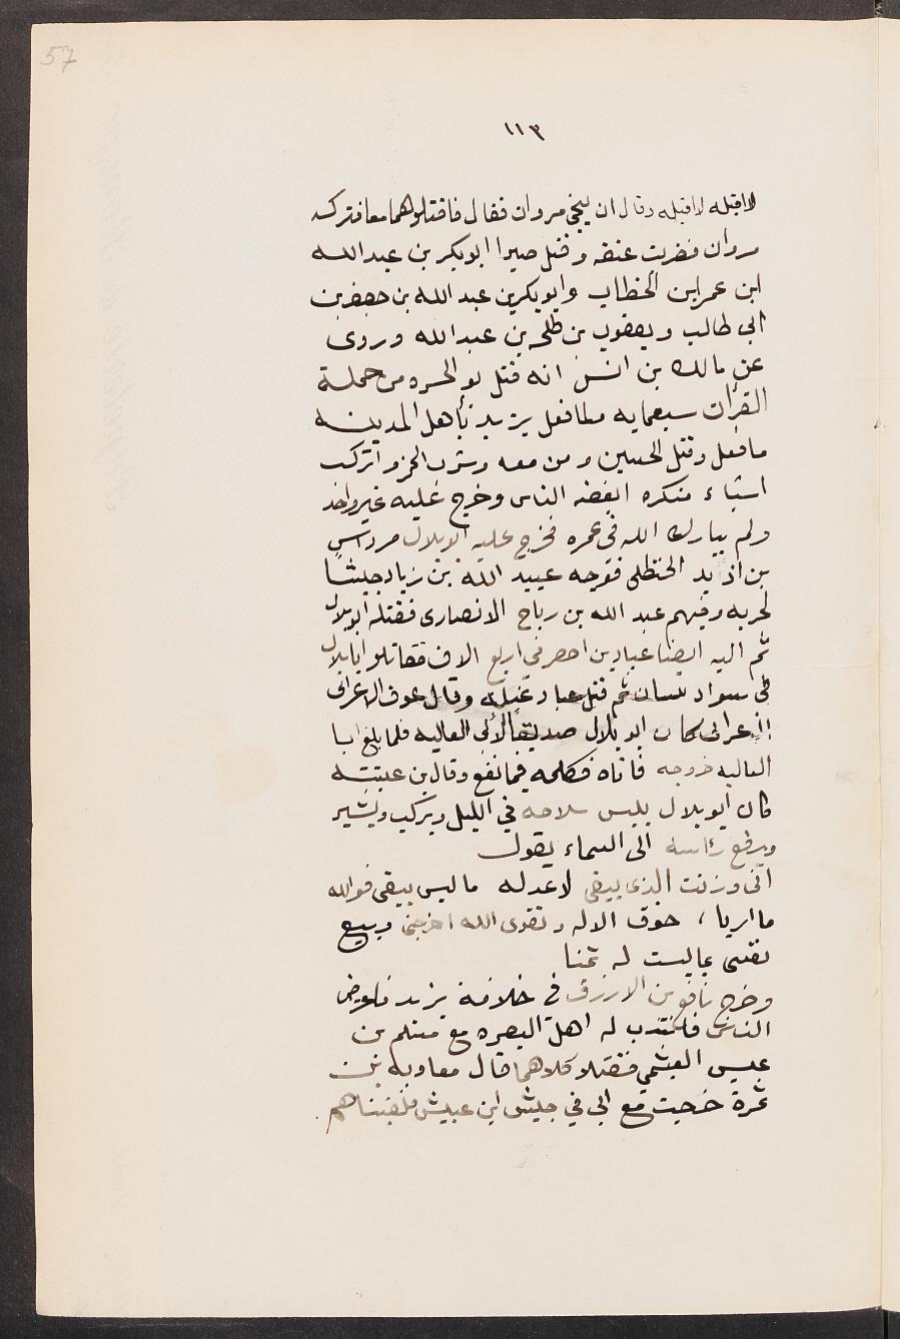 57
١١٣
لا اقبله لا اقبله وقال ان ينجى مروان فقال فاقتلوهما معا فترك
مروان فضربت عنقه وقتل صبرا ابو بكر بن عبد الله
ابن عمر ابن الخطاب وابو بكر بن عبد الله بن جعفر بن
ابى طالب ويعقوب بن طلحه بن عبد الله وروى
عن مالك بن انس انه قتل يو الحره من حملة
القرأن سبعمايه ولما فعل يزيد بأهل المدينه
ما فعل وقتل الحسين ومن معه وشرب الخمر واتركب
اشياء منكره ابغضه الناس وخرج عليه غير واحد
ولم يبارك الله فى عمره فخرج عليه ابو بلال مرداس
بن اذيد الحنظلى فوجه عبيد الله بن زياد جيشا
لحربه وفيهم عبد الله بن رباح الانصارى فقتله ابو بلال
ثم اليه ايضا عباد بن احصر في اربع الاف فقاتلوا ابا بلال
فى سواد ثم قتل عباد غيله وقال عوف الاعرابى
كان ابو بلال صديقا لابى العاليه فلما بلغ ابا
العاليه خروجه فاتاه فكلمه فما نفع وقال بن عيينه
كان ابو بلال يلبس سلاحه في الليل ويركب ويشير
ويرفع رأسه الى السماء يقول
انى وزنت الذى يبقى لاعدله ما ليس يبقى فوالله
ما خوف الاله وتقوى الله اخرجنى وبيع
نفسى بما ليست له ثمنا
وخرج نافع بن الازرق في خلافة يزيد فاعرض
الناس فانتدب له اهل البصره مع مسلم بن
عبيس العبشمي فقتلا كلاهما قال معاويه بن
خرجت مع ابى في جيش ابن عبيش فلقيناهم